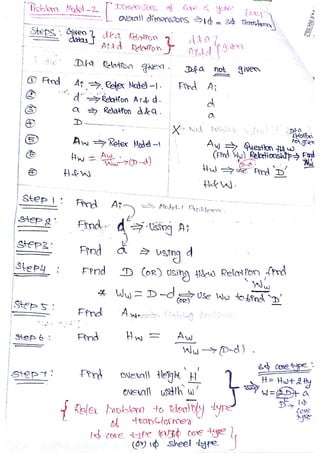 Problem Model-2
Dimensions of core & yoke (or)
overall dimensions ⇒ 1ϕ & 3ϕ Transformer
Steps: Given datas
d&a Relation
Ai & d Relation
d&a
Ai & d
given
D&a Relation given.
D&a not given
① Find Ai ⇒ Refer Model-1.
Find Ai
② d ⇒ Relation Ai & d.
d
③ a ⇒ Relation d & a.
a
④ D
X
⑤ Aw ⇒ Refer Model-1
Aw ⇒ Question
(Find Ww) Relationship → Find
⑥ Hw = Aw / Ww → (D-d)
Hw ⇒ use Find 'D'
H&W
H&W.
Step 1 : Find Ai ⇒ Model-1 Problem.
Step 2 : Find d ⇒ Using Ai
Step 3 : Find a ⇒ using d
Step 4 : Find D (or) using H&w Relation find Ww
* Ww = D-d ⇒ Use Ww to find 'D'
(or)
Step 5 : Find Aw
Step 6 : Find Hw = Aw / Ww → (D-d).
Step 7 : Find overall Height 'H'
overall width 'w'
3ϕ core type :
H = Hw + 2Hy
W = 2D + a
D → 1ϕ core type
{ Refer Problem to Identify type
of transformer
1ϕ core type (or) 3ϕ core type
(or) 1ϕ shell type }